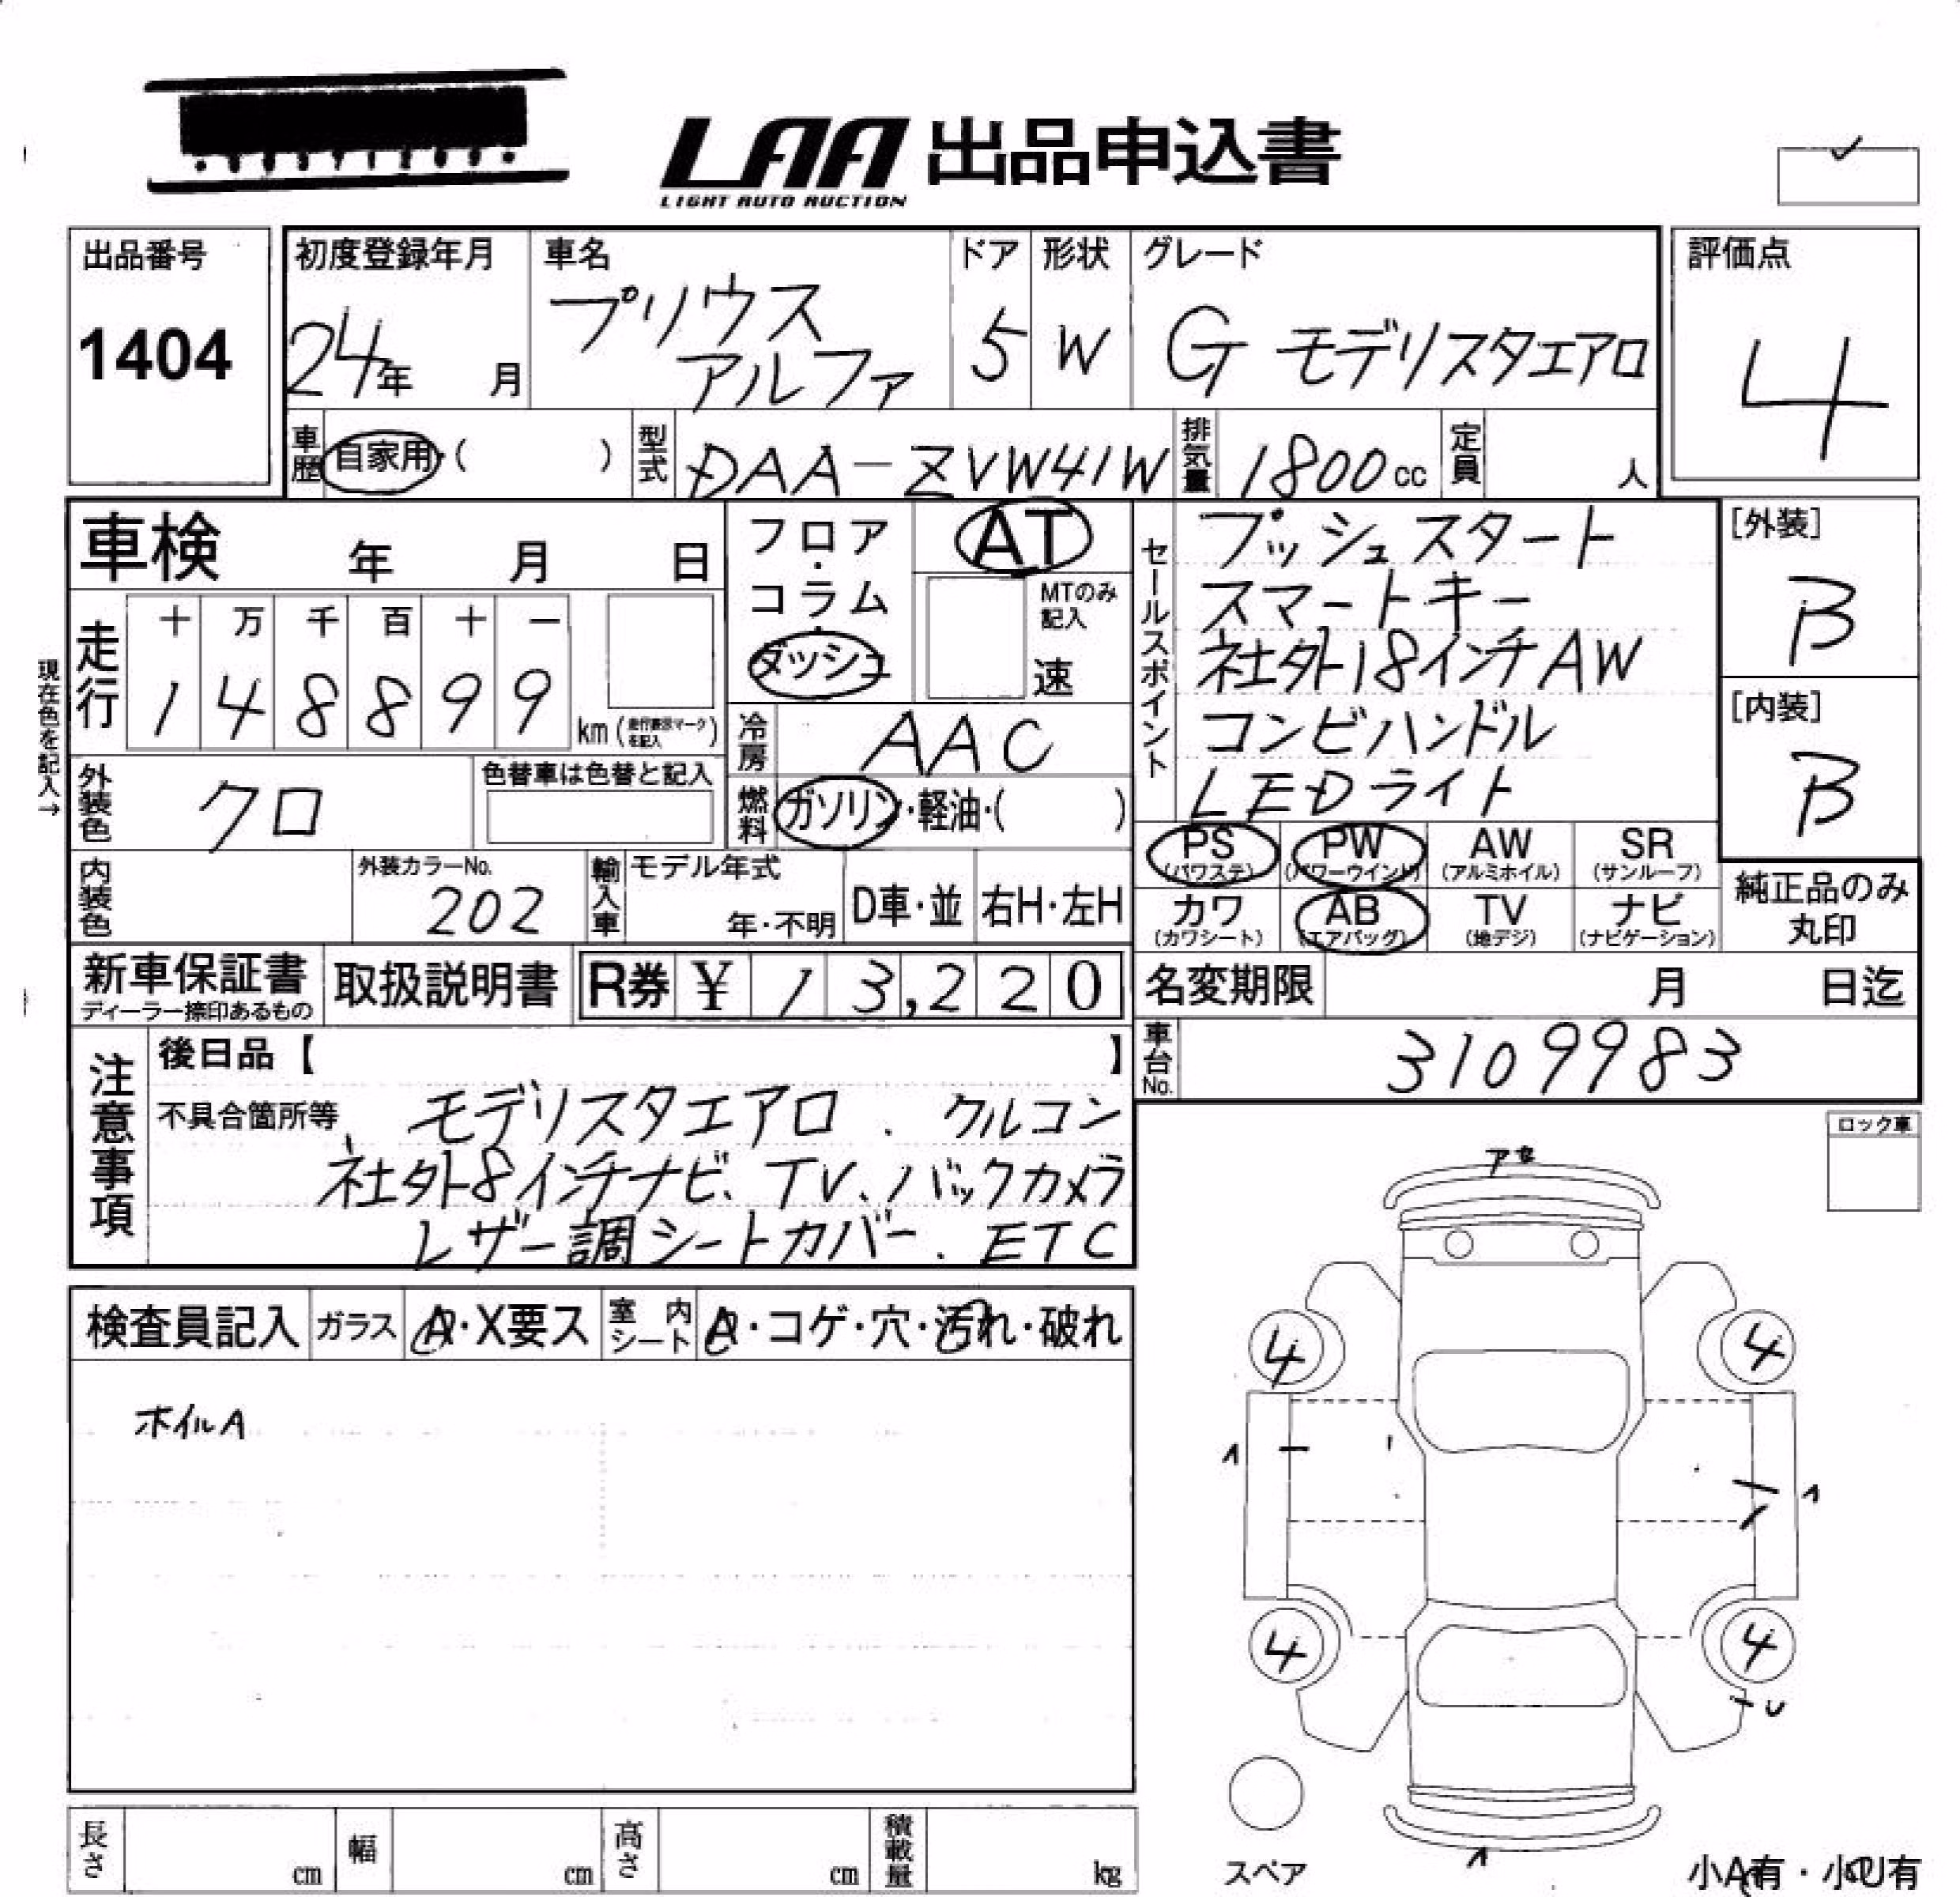 LAA 出品申込書
LIGHT AUTO AUCTION
出品番号
1404
初度登録年月
24年 月
車名
プリウス
アルファ
ドア
5
形状
W
グレード
G モデリスタエアロ
評価点
4
車歴 自家用・( )
型式 DAA-ZVW41W
排気量 1800cc
定員 人
車検 年 月 日
フロア・コラム・ダッシュ
AT
MTのみ記入
速
走行
十 万 千 百 十 一
1 4 8 8 9 9 km(走行表示マークを記入)
現在色を記入→
冷房 AAC
燃料 ガソリン・軽油・( )
外装色 クロ
色替車は色替と記入
内装色
外装カラーNo.
202
輸入車
モデル年式
年・不明
D車・並
右H・左H
セールスポイント
プッシュスタート
スマートキー
社外18インチAW
コンビハンドル
LEDライト
[外装]
B
[内装]
B
PS
(パワステ)
PW
(パワーウインド)
AW
(アルミホイル)
SR
(サンルーフ)
カワ
(カワシート)
AB
(エアバッグ)
TV
(地デジ)
ナビ
(ナビゲーション)
純正品のみ
丸印
新車保証書
ディーラー捺印あるもの
取扱説明書
R券 ¥ 13,220
名変期限 月 日迄
車台No. 3109983
注意事項
後日品【 】
不具合箇所等 モデリスタエアロ、クルコン
社外8インチナビ、TV、バックカメラ
レザー調シートカバー、ETC
ロック車
検査員記入
ガラス
A・X要ス
室内シート
A・コゲ・穴・汚れ・破れ
ホイルA
4
4
4
4
スペア
小A有・小U有
長さ cm
幅 cm
高さ cm
積載量 kg